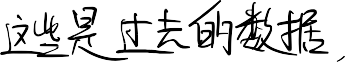 这些是过去的数据,